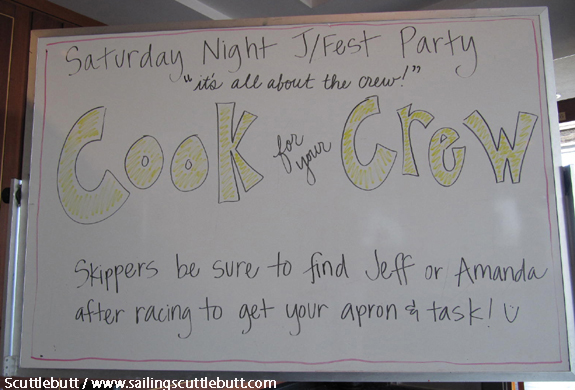 Saturday Night J/Fest Party
"it's all about the crew!"
Cook for your Crew
Skippers be sure to find Jeff or Amanda
after racing to get your apron & task! ☺
Scuttlebutt / www.sailingscuttlebutt.com